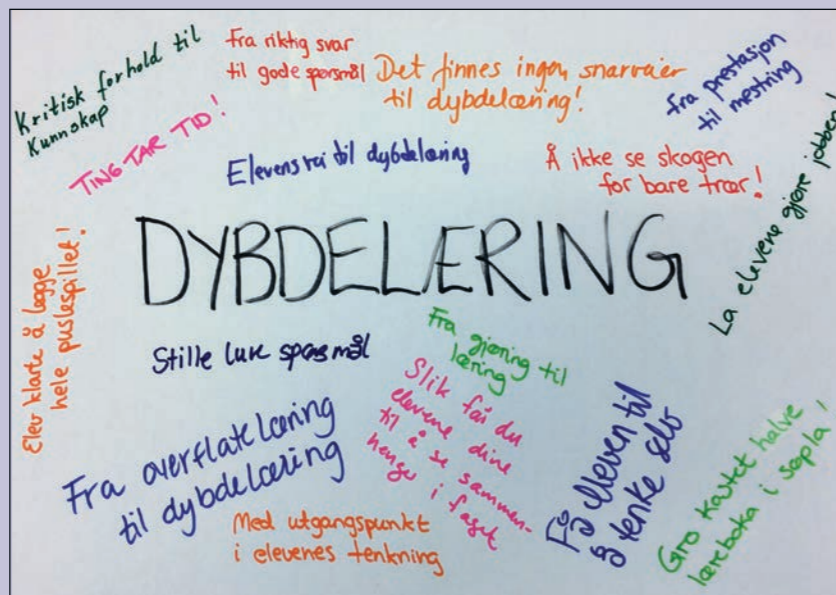 Kritisk forhold til
Kunnskap
TING TAR TID!
Fra riktig svar
til gode spørsmål
Det finnes ingen snarveier
til dybdelæring!
fra prestasjon
til mestring
Elevens vei til dybdelæring
Å ikke se skogen
for bare trær!
La elevene gjøre jobben!
DYBDELÆRING
Elev klarte å legge
hele puslespillet!
Stille lure spørsmål
Fra gjøring til
læring
Slik får du
elevene dine
til å se sammen-
henge i faget
Fra overflatelæring
til dybdelæring
Med utgangspunkt
i elevenes tenkning
Få eleven til
å tenke selv
Gro kastet halve
læreboka i søpla!